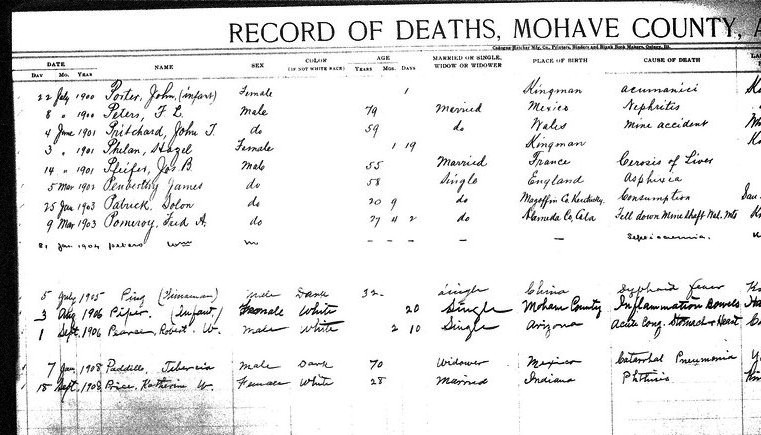 RECORD OF DEATHS, MOHAVE COUNTY, A
DATE NAME SEX COLOR AGE MARRIED OR SINGLE, PLACE OF BIRTH CAUSE OF DEATH
DAY MO. YEAR (IF NOT WHITE RACE) YEARS MOS. DAYS WIDOW OR WIDOWER
22 July 1900 Porter, John, (infant) Female 1 Kingman
8 " 1900 Peters, F L. Male 79 Married Mexico Nephritis
4 June 1901 Pritchard, John T. do 59 do Wales Mine accident
3 " 1901 Philan, Hazel Female 1 19 Kingman
14 " 1901 Pfeifer, Jos B. Male 55 Married France Cerosis of Liver
5 Mar 1902 Penberthy James do 58 Single England Asphixia
25 Jan 1903 Patrick, Solon do 20 9 do Magoffin Co. Kentucky. Consumption
9 Mar 1903 Pomeroy, Fred A. do 27 4 2 do Alameda Co, Cala Fell down Mine shaft
Jan 1904 Peters Wm m – – – – – Septicaemia.
5 July 1905 Ping Male Dark 32 Single China Typhoid fever
3 Aug 1906 Piper, (Infant) Female White 20 Single Mohave County Inflammation Bowels
1 Sept. 1906 Pearson, Robert W. Male White 2 10 Single Arizona Acute Cong. Stomach & Heart
7 Jan. 1908 Paddillo, Male Dark 70 Widower Mexico Catarrhal Pneumonia
18 Sept. 1908 Price, Katherine W. Female White 28 Married Indiana Phthisis